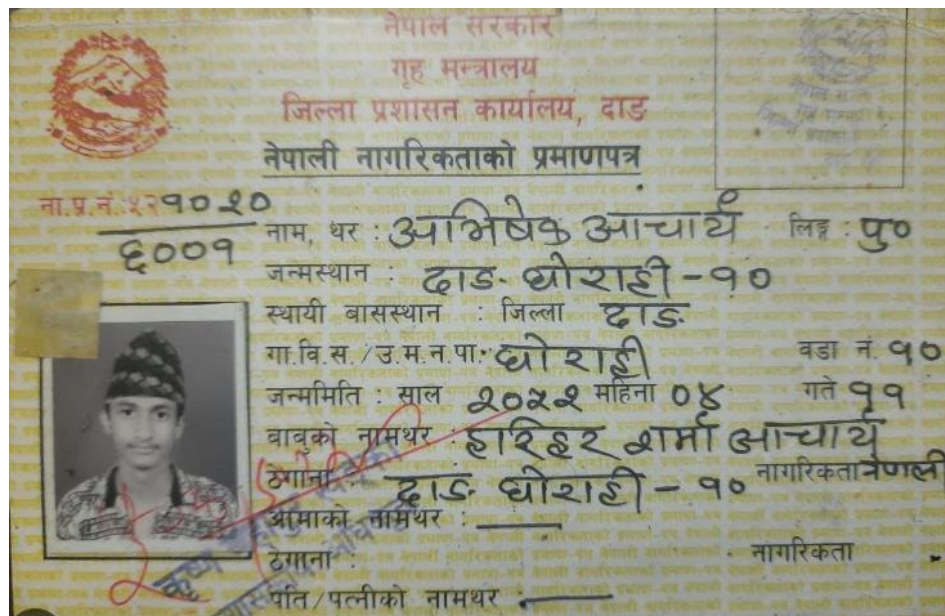 नेपाल सरकार
गृह मन्त्रालय
जिल्ला प्रशासन कार्यालय, दाङ
नेपाली नागरिकताको प्रमाणपत्र
ना.प्र.नं.: ५२१०२०
६००१
नाम, थर : अभिषेक आचार्य लिङ्ग : पु०
जन्मस्थान : दाङ. घोराही - १०
स्थायी बासस्थान : जिल्ला दाङ.
गा.वि.स./उ.म.न.पा.: घोराही वडा नं. १०
जन्ममिति : साल २०५२ महिना ०४ गते ११
बाबुको नामथर : हरिहर शर्मा आचार्य
ठेगाना : दाङ. घोराही - १० नागरिकता
आमाको नामथर :
ठेगाना : नागरिकता
पति/पत्नीको नामथर :
कृष्ण